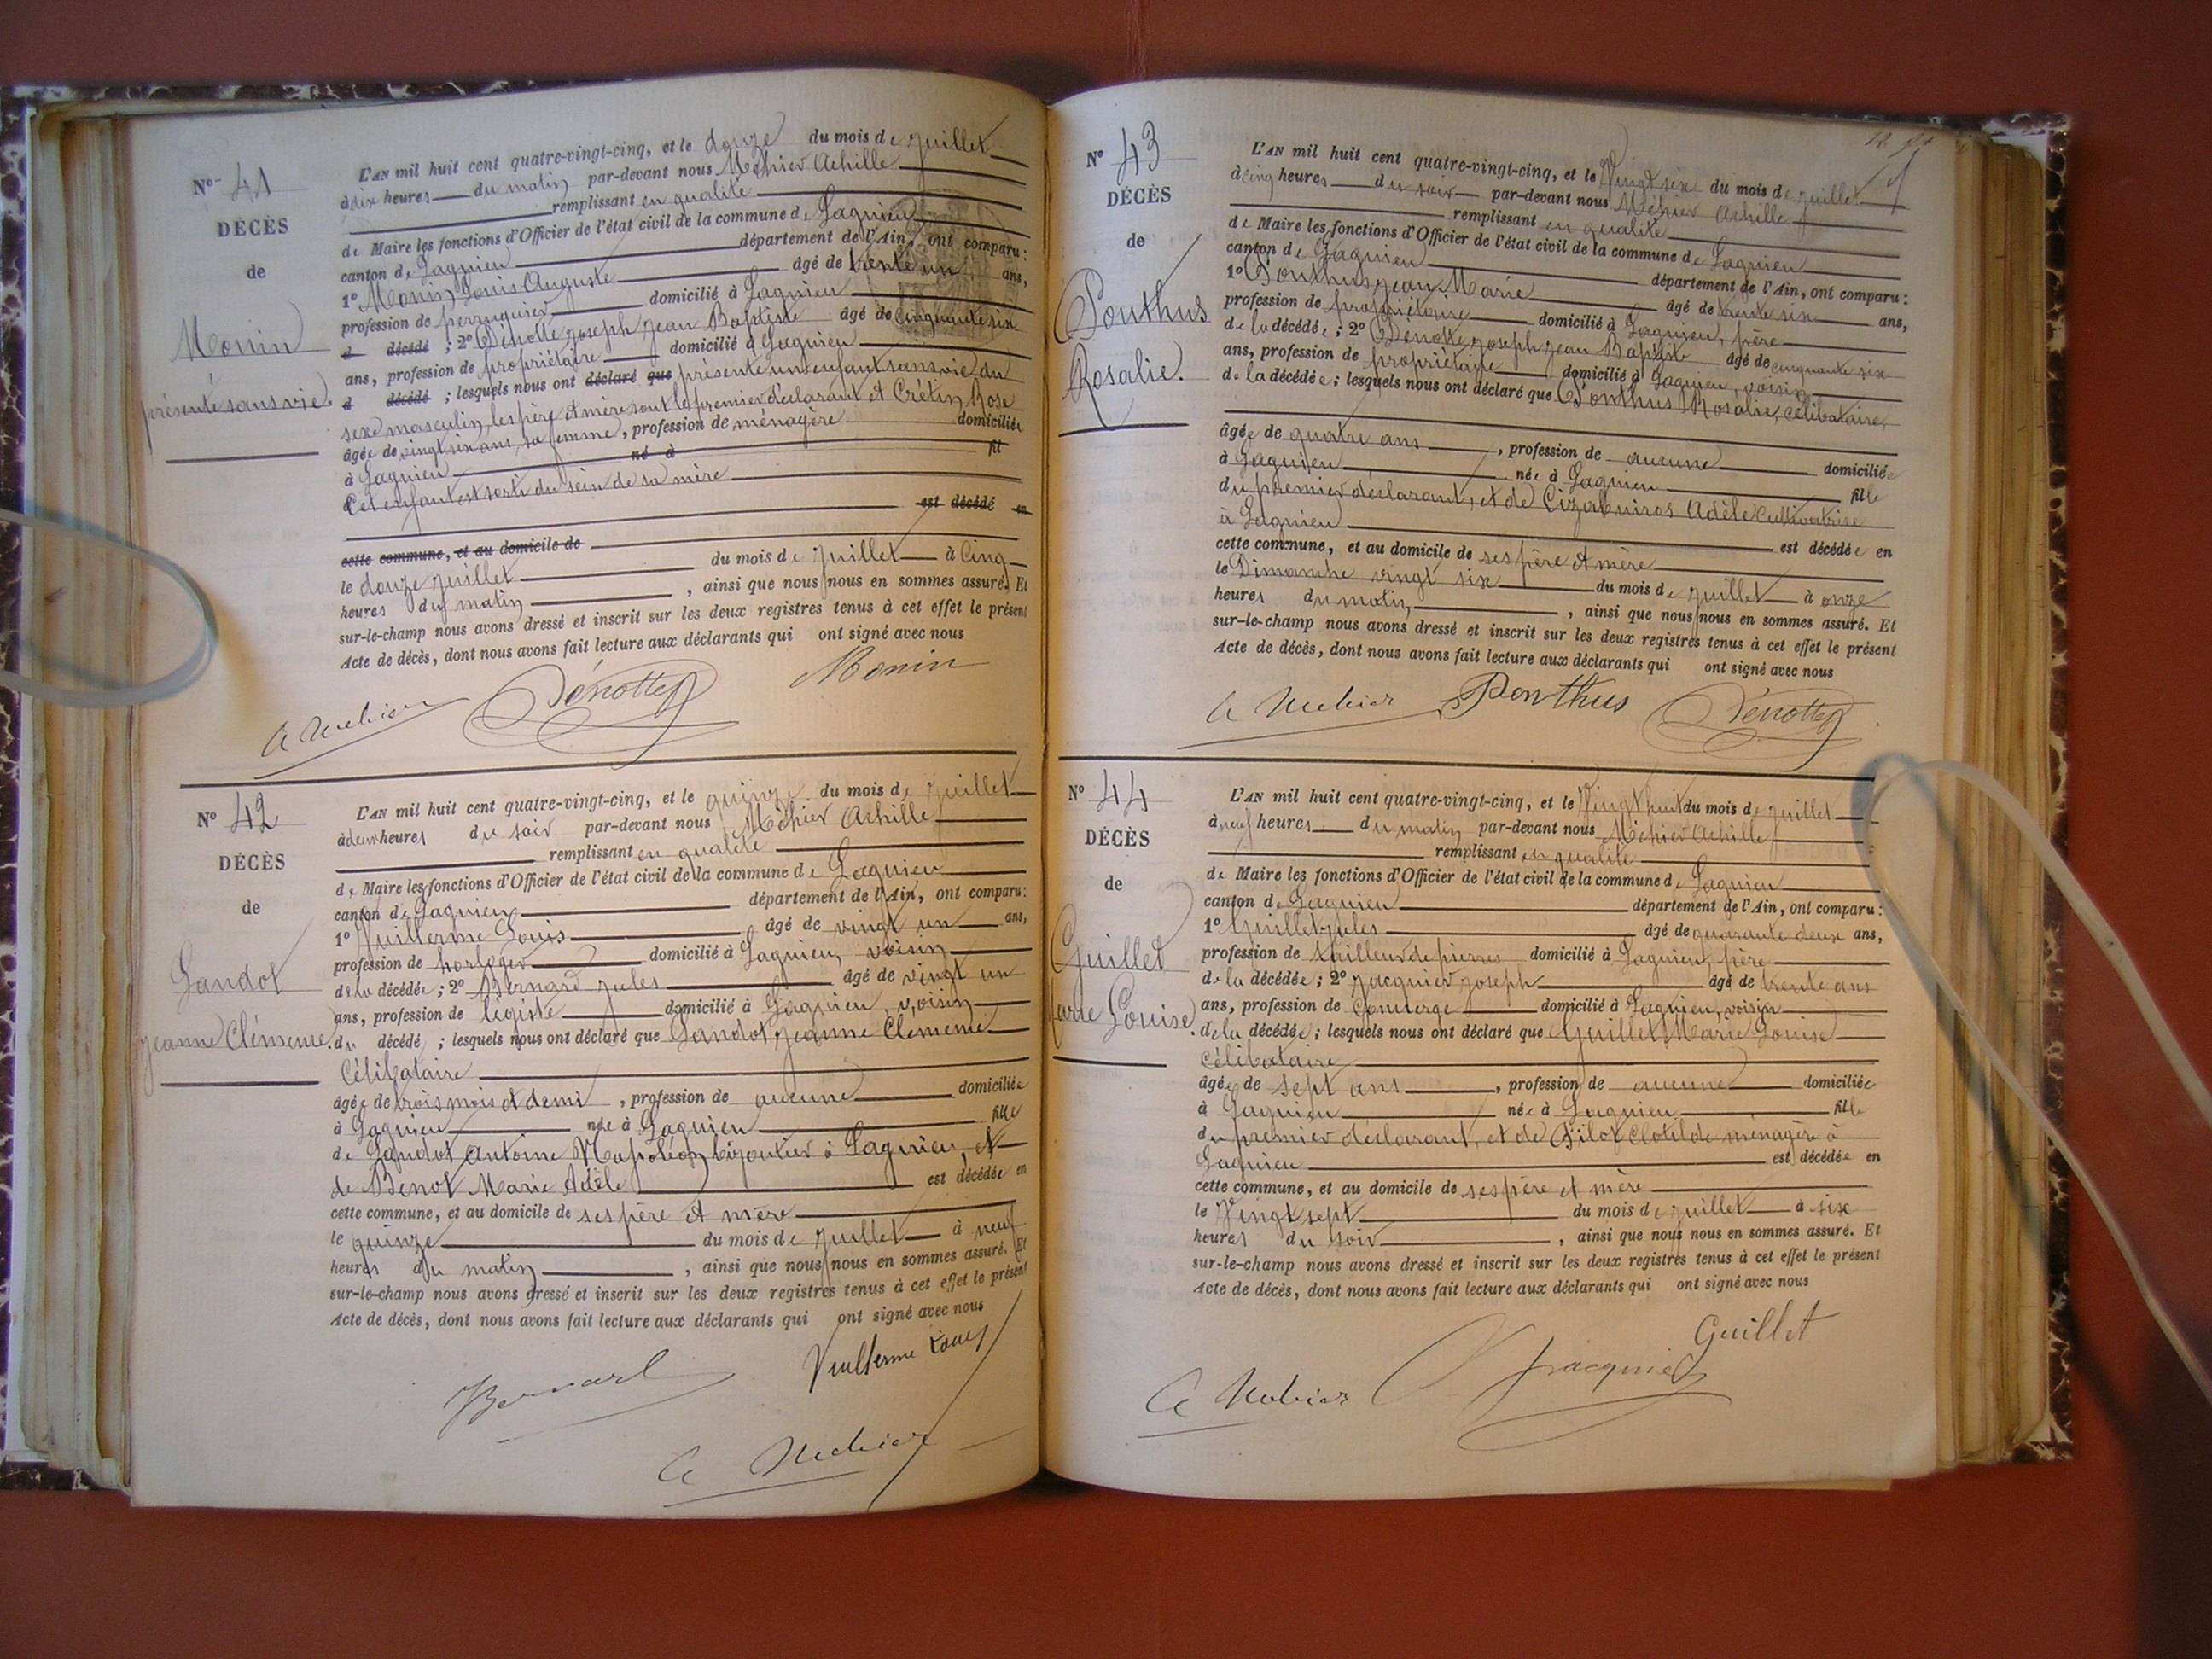 N° 41
DÉCÈS
de
Monin
présenté sans vie.
L'AN mil huit cent quatre-vingt-cinq, et le douze du mois de juillet
à dix heures du matin par-devant nous Méhier Achille
remplissant en qualité
de Maire les fonctions d'Officier de l'état civil de la commune de Lagnieu
canton de Lagnieu département de l'Ain, ont comparu :
1° Monin Louis Auguste âgé de trente un ans,
profession de perruquier domicilié à Lagnieu
d décédé ; 2° Dénotte Joseph Jean Baptiste âgé de cinquante six
ans, profession de propriétaire domicilié à Lagnieu
d décédé ; lesquels nous ont déclaré que présenté un enfant sans vie du
sexe masculin, les père et mère sont le premier déclarant et Crétin Rose
âgée de vingt six ans, sa femme, profession de ménagère domiciliée
à Lagnieu né à fil
Cet enfant est sorti du sein de sa mère
est décédé en
cette commune, et au domicile de
le douze juillet du mois de juillet à cinq
heures du matin , ainsi que nous nous en sommes assuré. Et
sur-le-champ nous avons dressé et inscrit sur les deux registres tenus à cet effet le présent
Acte de décès, dont nous avons fait lecture aux déclarants qui ont signé avec nous
A Méhier Dénotte Monin
N° 42
DÉCÈS
de
Landot
Jeanne Clémence.
L'AN mil huit cent quatre-vingt-cinq, et le quinze du mois de juillet
à deux heures du soir par-devant nous Méhier Achille
remplissant en qualité
de Maire les fonctions d'Officier de l'état civil de la commune de Lagnieu
canton de Lagnieu département de l'Ain, ont comparu :
1° Vuillerme Louis âgé de vingt un ans,
profession de horloger domicilié à Lagnieu, voisin
de la décédée ; 2° Bernard Jules âgé de vingt un
ans, profession de légiste domicilié à Lagnieu, voisin
du décédé ; lesquels nous ont déclaré que Landot Jeanne Clémence
Célibataire
âgée de trois mois et demi , profession de aucune domiciliée
à Lagnieu née à Lagnieu fille
de Landot Antoine Napoléon bijoutier à Lagnieu, et
de Benot Marie Adèle est décédée en
cette commune, et au domicile de ses père et mère
le quinze du mois de juillet à neuf
heures du matin , ainsi que nous nous en sommes assuré. Et
sur-le-champ nous avons dressé et inscrit sur les deux registres tenus à cet effet le présent
Acte de décès, dont nous avons fait lecture aux déclarants qui ont signé avec nous
Bernard Vuillerme Louis
A Méhier
N° 43
DÉCÈS
de
Ponthus
Rosalie.
L'AN mil huit cent quatre-vingt-cinq, et le Vingt six du mois de juillet
à cinq heures du soir par-devant nous Méhier Achille
remplissant en qualité
de Maire les fonctions d'Officier de l'état civil de la commune de Lagnieu
canton de Lagnieu département de l'Ain, ont comparu :
1° Ponthus Jean Marie âgé de trente six ans,
profession de propriétaire domicilié à Lagnieu, père
de la décédée ; 2° Dénotte Joseph Jean Baptiste âgé de cinquante six
ans, profession de propriétaire domicilié à Lagnieu, voisin
de la décédée ; lesquels nous ont déclaré que Ponthus Rosalie, célibataire,
âgée de quatre ans , profession de aucune domiciliée
à Lagnieu née à Lagnieu fille
du premier déclarant, et de Adèle Cultivatrice
à Lagnieu est décédée en
cette commune, et au domicile de ses père et mère
le Dimanche vingt six du mois de juillet à onze
heures du matin , ainsi que nous nous en sommes assuré. Et
sur-le-champ nous avons dressé et inscrit sur les deux registres tenus à cet effet le présent
Acte de décès, dont nous avons fait lecture aux déclarants qui ont signé avec nous
A Méhier Ponthus Dénotte
N° 44
DÉCÈS
de
Guillet
Marie Louise.
L'AN mil huit cent quatre-vingt-cinq, et le Vingt huit du mois de juillet
à neuf heures du matin par-devant nous Méhier Achille
remplissant en qualité
de Maire les fonctions d'Officier de l'état civil de la commune de Lagnieu
canton de Lagnieu département de l'Ain, ont comparu :
1° Guillet Jules âgé de quarante deux ans,
profession de tailleur de pierres domicilié à Lagnieu, père
de la décédée ; 2° Jacquier Joseph âgé de trente ans
ans, profession de Concierge domicilié à Lagnieu, voisin
de la décédée ; lesquels nous ont déclaré que Guillet Marie Louise
Célibataire
âgée de sept ans , profession de aucune domiciliée
à Lagnieu née à Lagnieu fille
du premier déclarant, et de Clotilde ménagère à
Lagnieu est décédée en
cette commune, et au domicile de ses père et mère
le Vingt sept du mois de juillet à six
heures du soir , ainsi que nous nous en sommes assuré. Et
sur-le-champ nous avons dressé et inscrit sur les deux registres tenus à cet effet le présent
Acte de décès, dont nous avons fait lecture aux déclarants qui ont signé avec nous
Guillet
A Méhier Jacquier